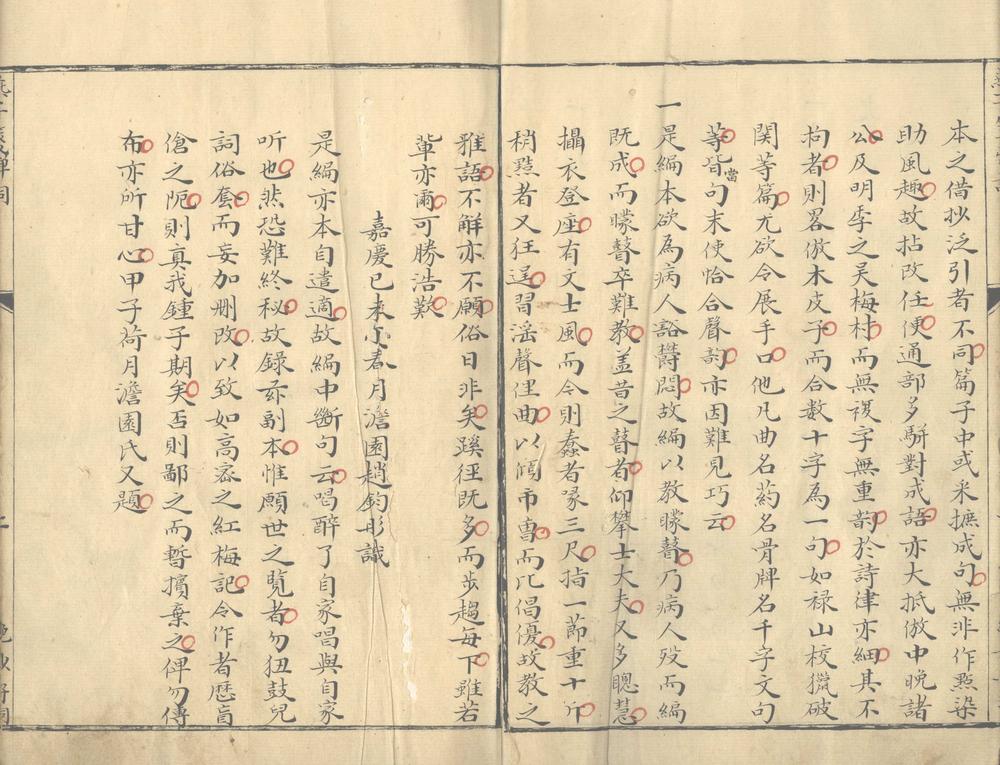 本之借抄泛引者不同篇子中或采摭成句無非作㸃染
助風趣故拈改任便通部多駢對成語亦大抵倣中晚諸
公及明季之吳梅村而無複字無重韵於詩律亦細其不
拘者則畧倣木皮子而合數十字為一句如禄山校獵破
関等篇尤欲令展手口他凡曲名葯名骨牌名千字文句
等皆當句末使恰合聲韵亦因難見巧云
一是編本欲為病人豁欝悶故編以教矇瞽乃病人歿而編
既成而矇瞽卒難教盖昔之瞽者仰攀士大夫又多聰慧
攝衣登座有文士風而今則蠢者豕三尺指一莭重十斤
稍黠者又狂逞習滛聲俚曲以傾市曹而比倡優故教之
雅語不解亦不願俗日非矣蹊徑既多而步趨每下雖若
軰亦爾可勝浩歎
嘉慶已未小春月澹園趙鈞彤識
是編亦本自遣適故編中斷句云喝醉了自家唱與自家
听也然恐難終秘故録茲副本惟願世之覧者勿狃鼓兒
詞俗套而妄加刪改以致如高宻之紅梅記令作者厯盲
傖之阨則真我鍾子期矣否則鄙之而暫擯棄之俾勿傳
布亦所甘心甲子荷月澹園氏又題